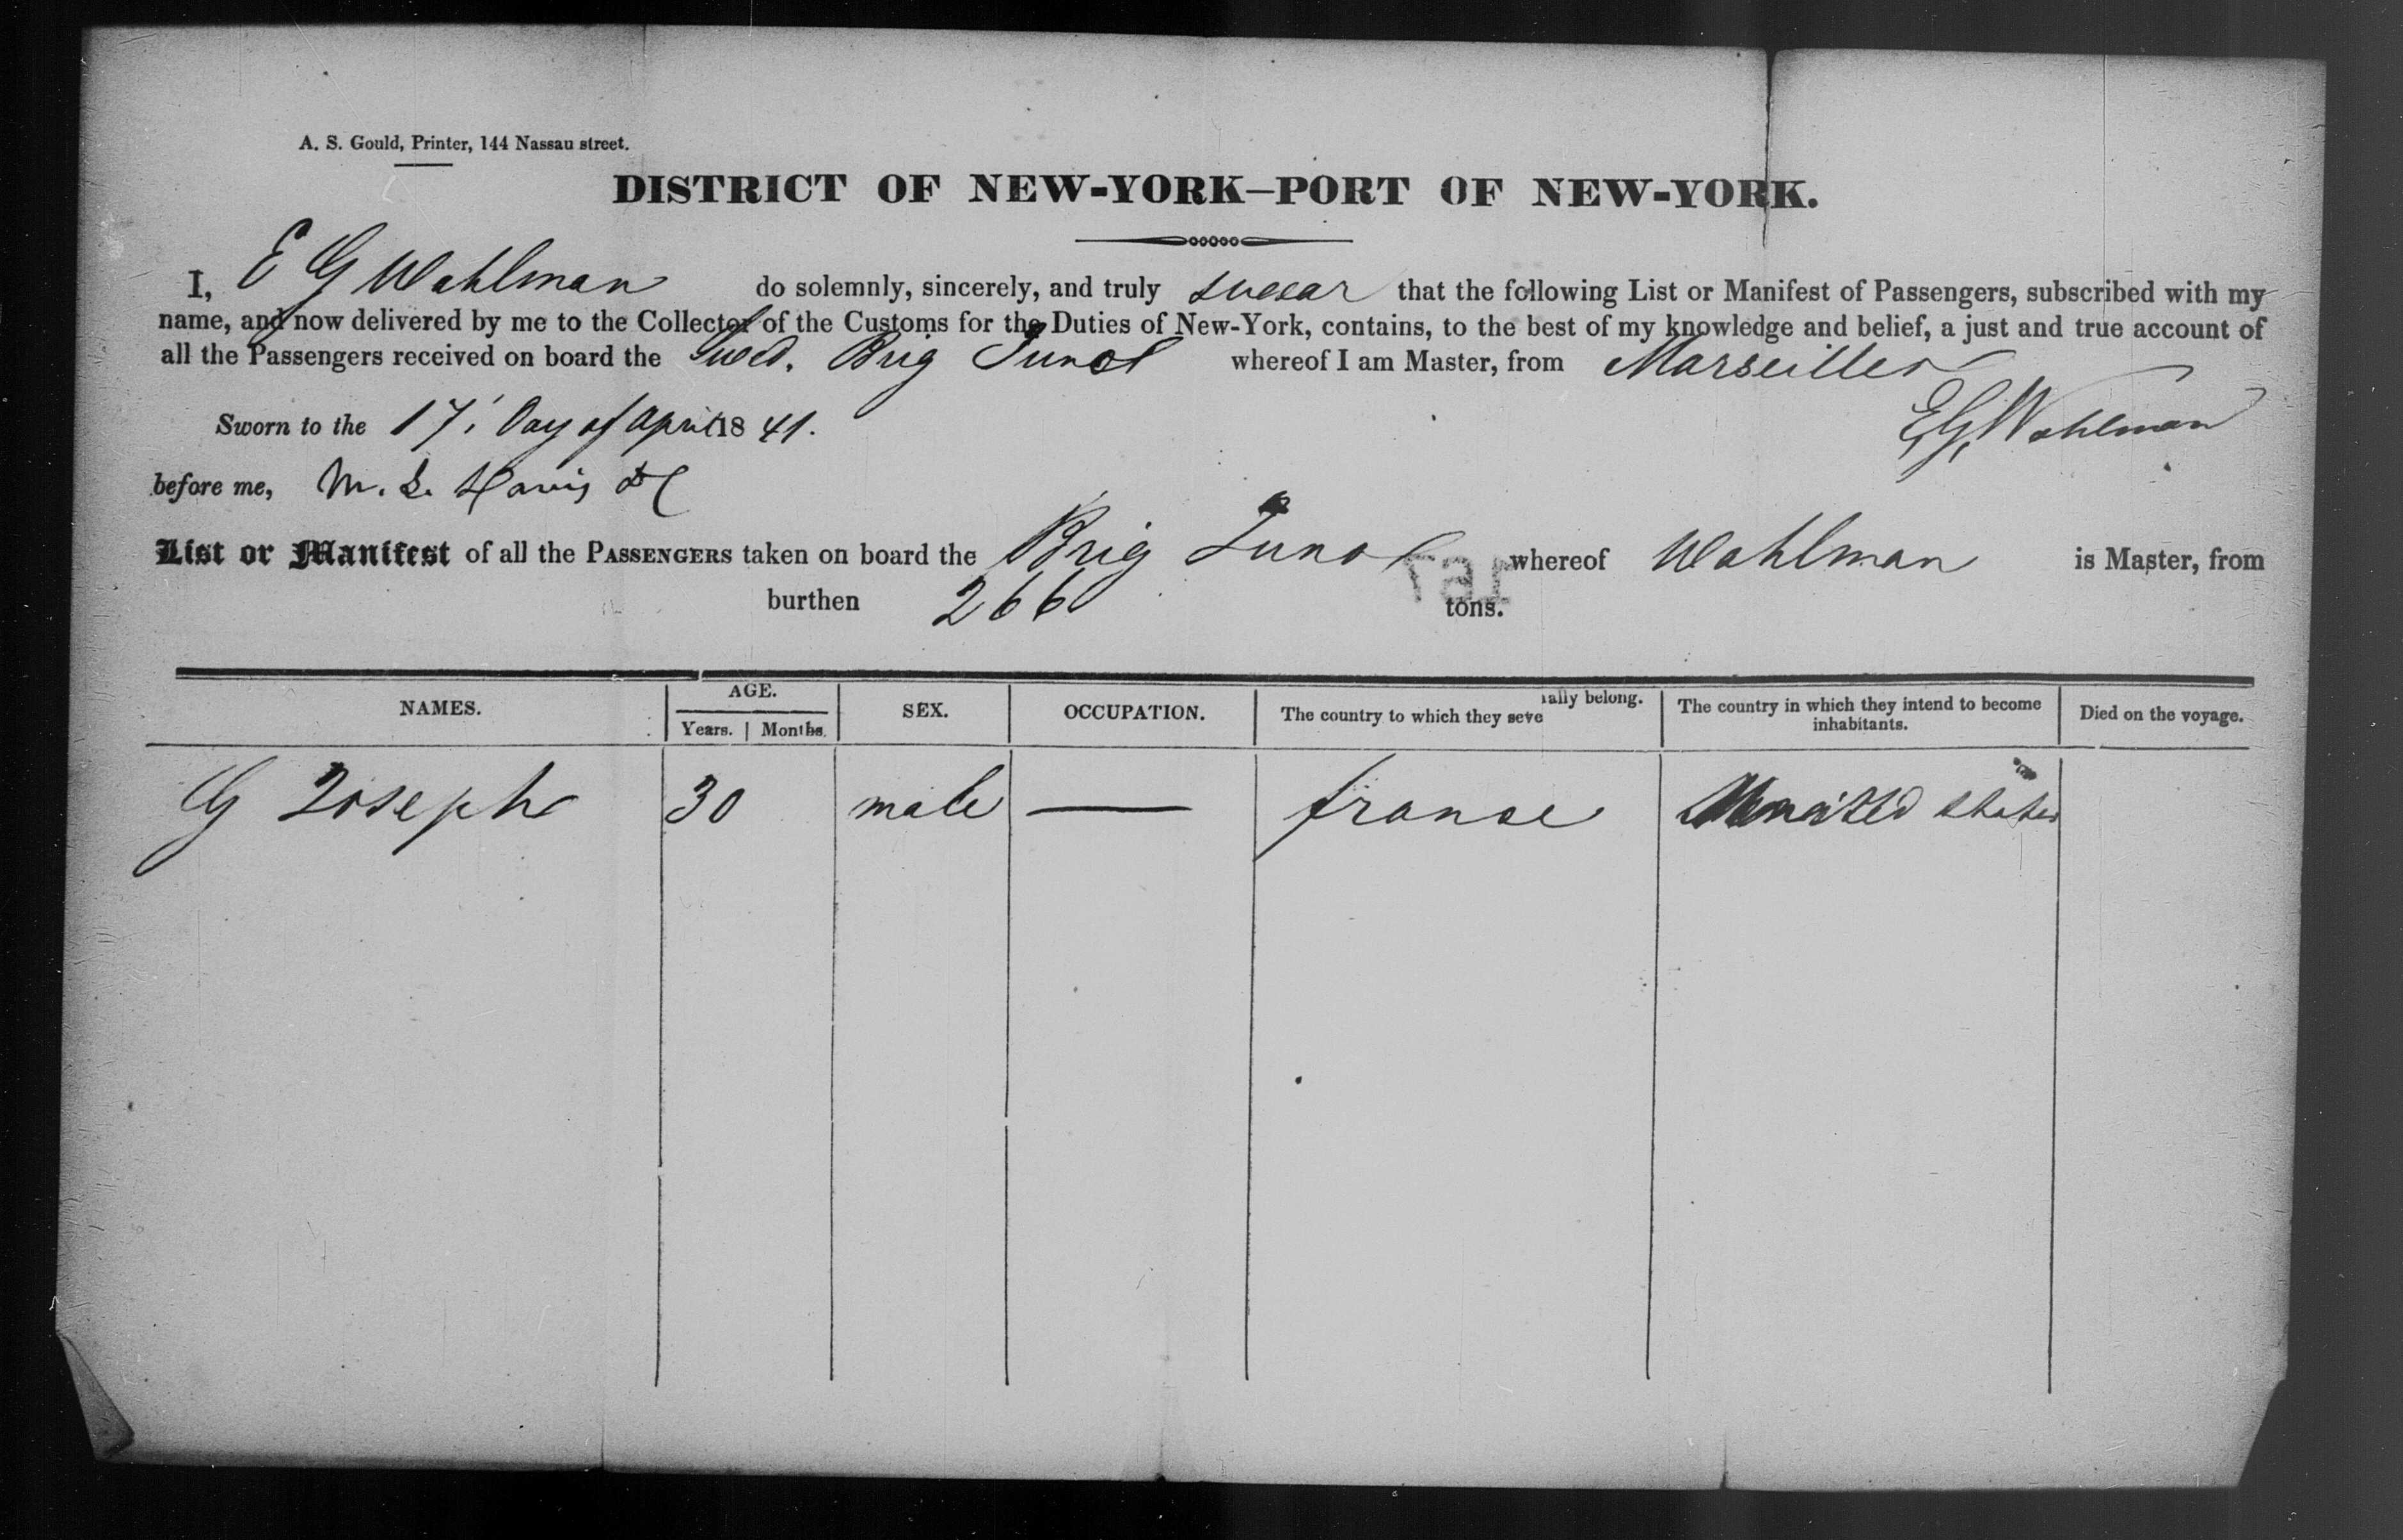 A. S. Gould, Printer, 144 Nassau street.
DISTRICT OF NEW-YORK—PORT OF NEW-YORK.
I, E G Wahlman do solemnly, sincerely, and truly swear that the following List or Manifest of Passengers, subscribed with my
name, and now delivered by me to the Collector of the Customs for the Duties of New-York, contains, to the best of my knowledge and belief, a just and true account of
all the Passengers received on board the Swed. Brig Juno whereof I am Master, from Marseilles
E, G, Wahlman
Sworn to the 17, Day of April 1841.
before me, M. L. Davis
List or Manifest of all the PASSENGERS taken on board the Brig Juno whereof Wahlman is Master, from
burthen 266 tons.
NAMES. AGE. Years. Months. SEX. OCCUPATION. The country to which they severally belong. The country in which they intend to become inhabitants. Died on the voyage.
G Joseph 30 male — france United states